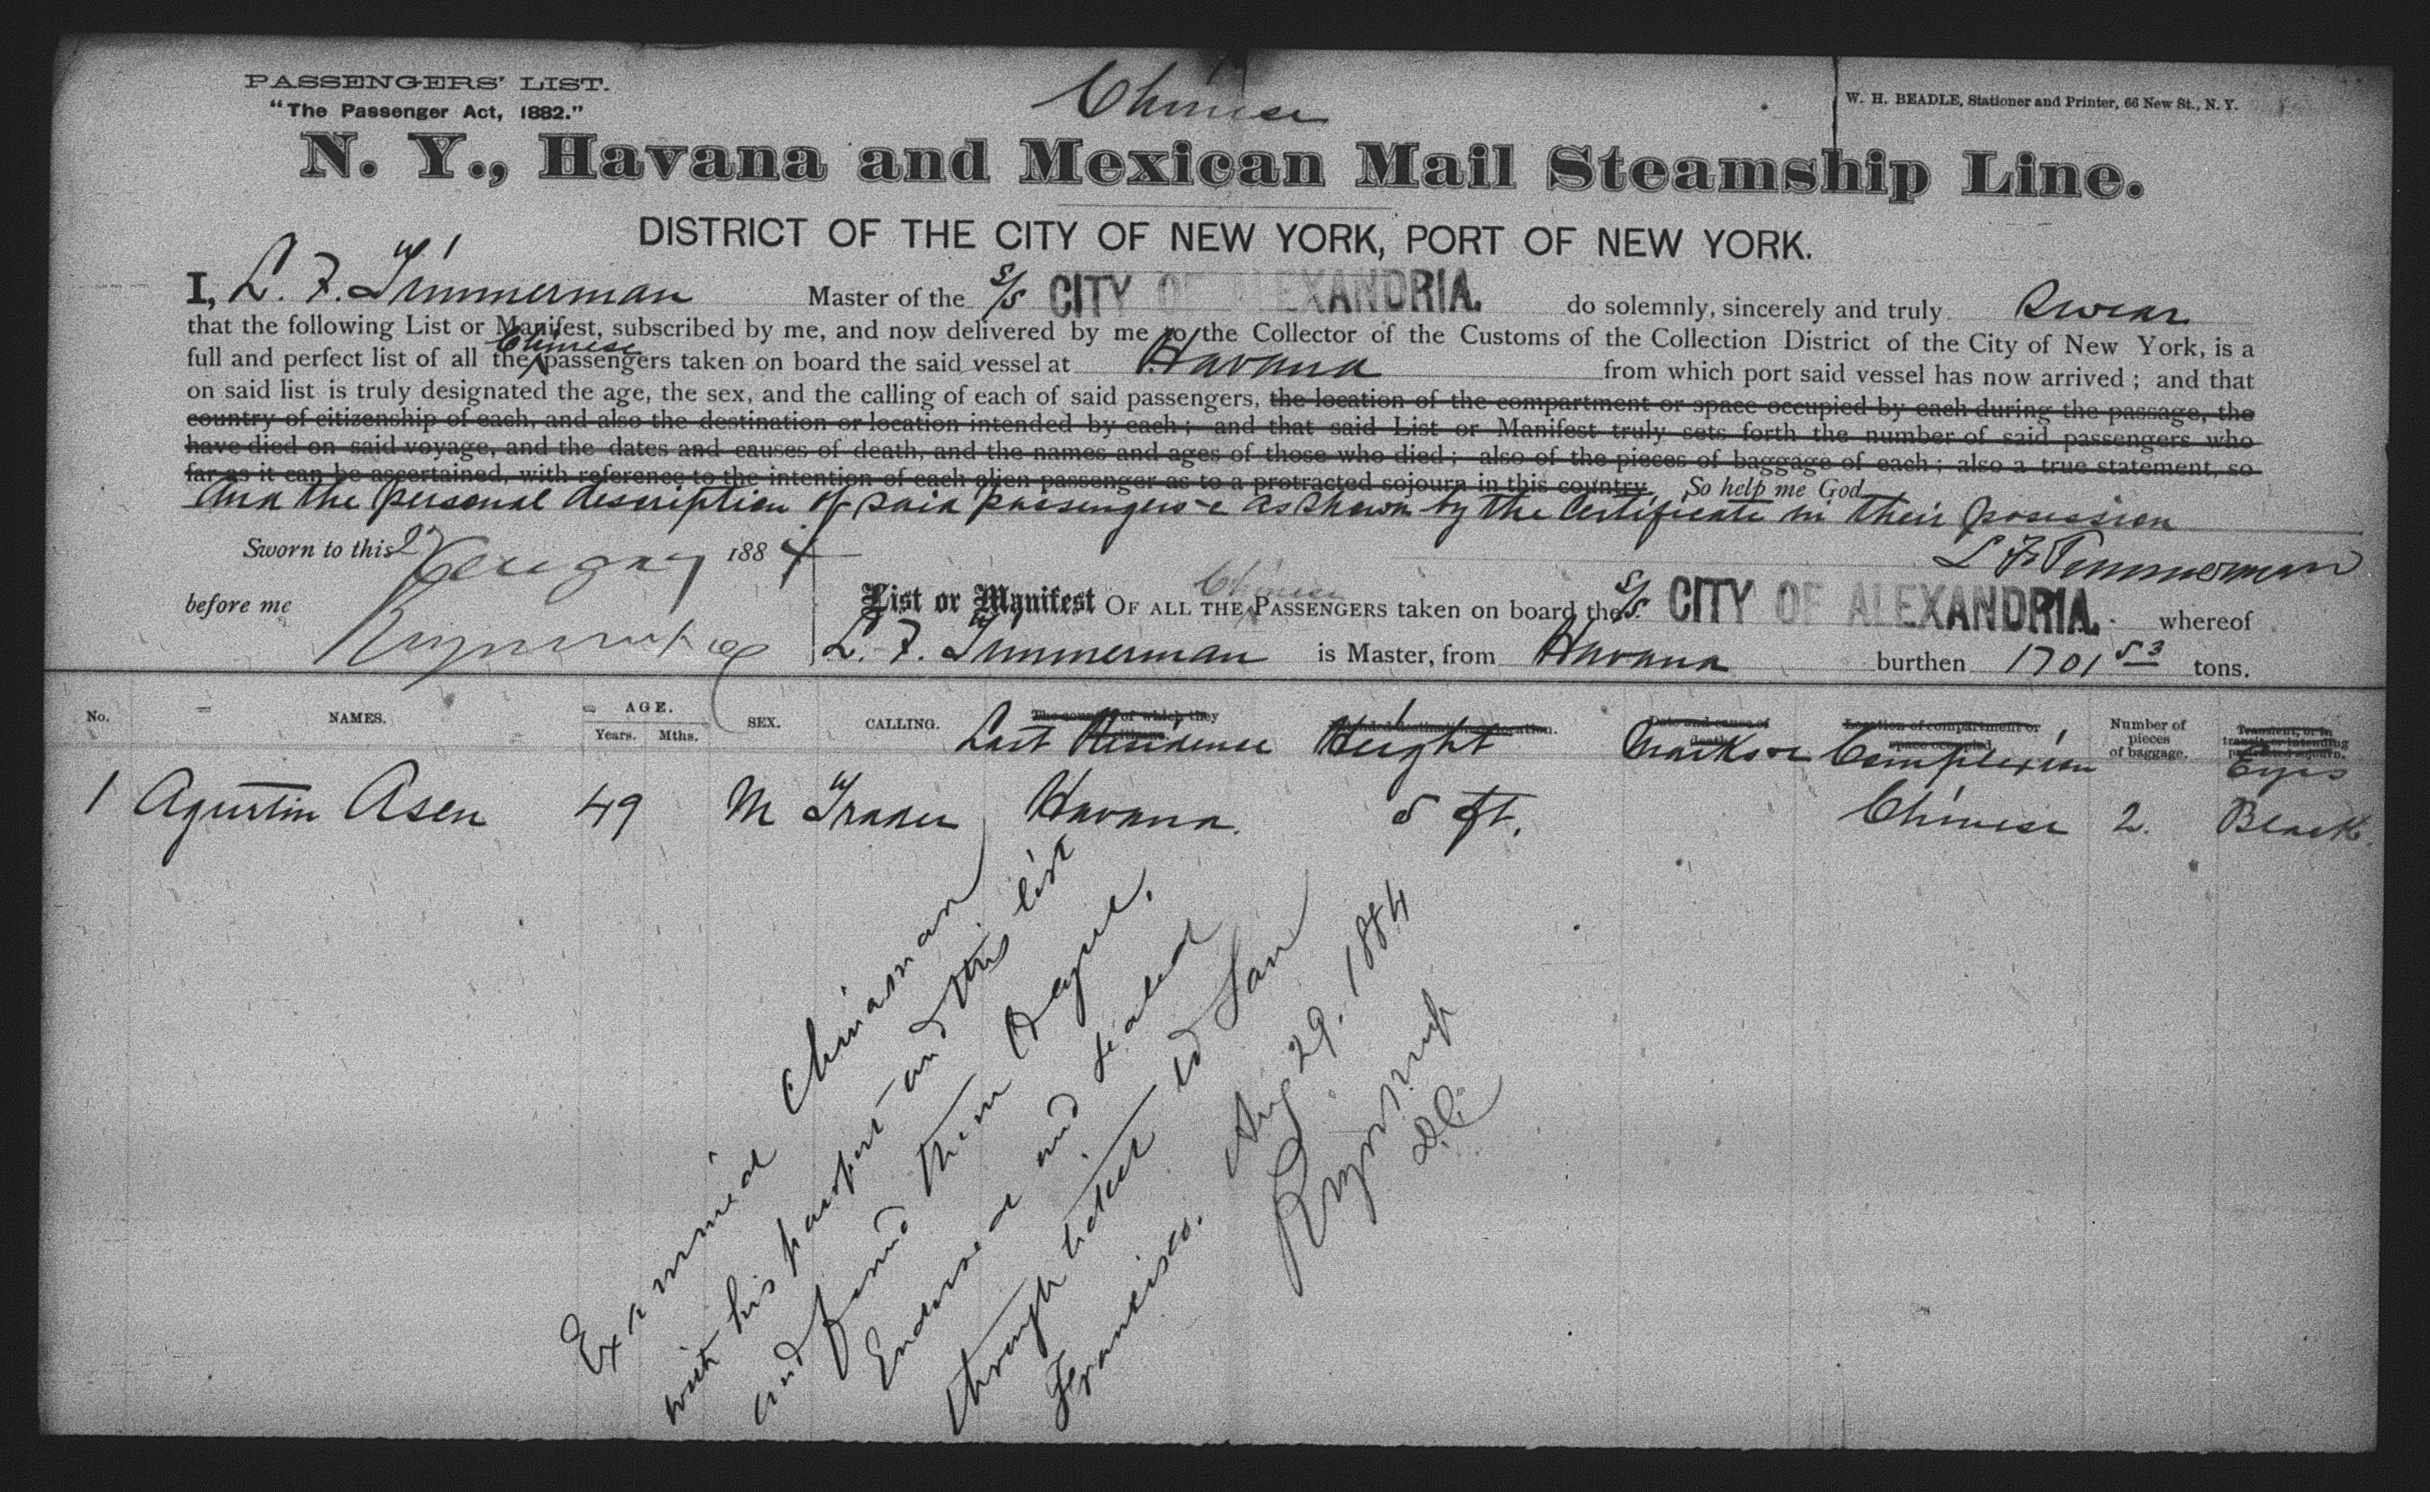 PASSENGERS' LIST.
"The Passenger Act, 1882."
Chinese
W. H. BEADLE, Stationer and Printer, 66 New St., N. Y.
N. Y., Havana and Mexican Mail Steamship Line.
DISTRICT OF THE CITY OF NEW YORK, PORT OF NEW YORK.
I, L. F. Timmerman Master of the S/S CITY OF ALEXANDRIA. do solemnly, sincerely and truly Swear
that the following List or Manifest, subscribed by me, and now delivered by me to the Collector of the Customs of the Collection District of the City of New York, is a
full and perfect list of all the Chinese passengers taken on board the said vessel at Havana from which port said vessel has now arrived; and that
on said list is truly designated the age, the sex, and the calling of each of said passengers, the location of the compartment or space occupied by each during the passage, the
country of citizenship of each, and also the destination or location intended by each; and that said List or Manifest truly sets forth the number of said passengers who
have died on said voyage, and the dates and causes of death, and the names and ages of those who died; also of the pieces of baggage of each; also a true statement, so
far as it can be ascertained, with reference to the intention of each alien passenger as to a protracted sojourn in this country. So help me God
And the personal description of said passengers as shown by the Certificate in their posession
Sworn to this 1884
L F Timmerman
before me
List or Manifest OF ALL THE Chinese PASSENGERS taken on board the S/S. CITY OF ALEXANDRIA. whereof
L. F. Timmerman is Master, from Havana burthen 1701 53 tons.
No. NAMES. AGE. Years. Mths. SEX. CALLING. Last Residence Height Marks Complexion Number of pieces of baggage. Eyes
1 Agustin Asen 49 M Trader Havana. 5 ft. Chinese 2. Black.
Examined Chinaman
with his passport and this list
and found them agree.
Endorsed and sealed
through ticket to San
Francisco. Aug 29. 1884
D.C.